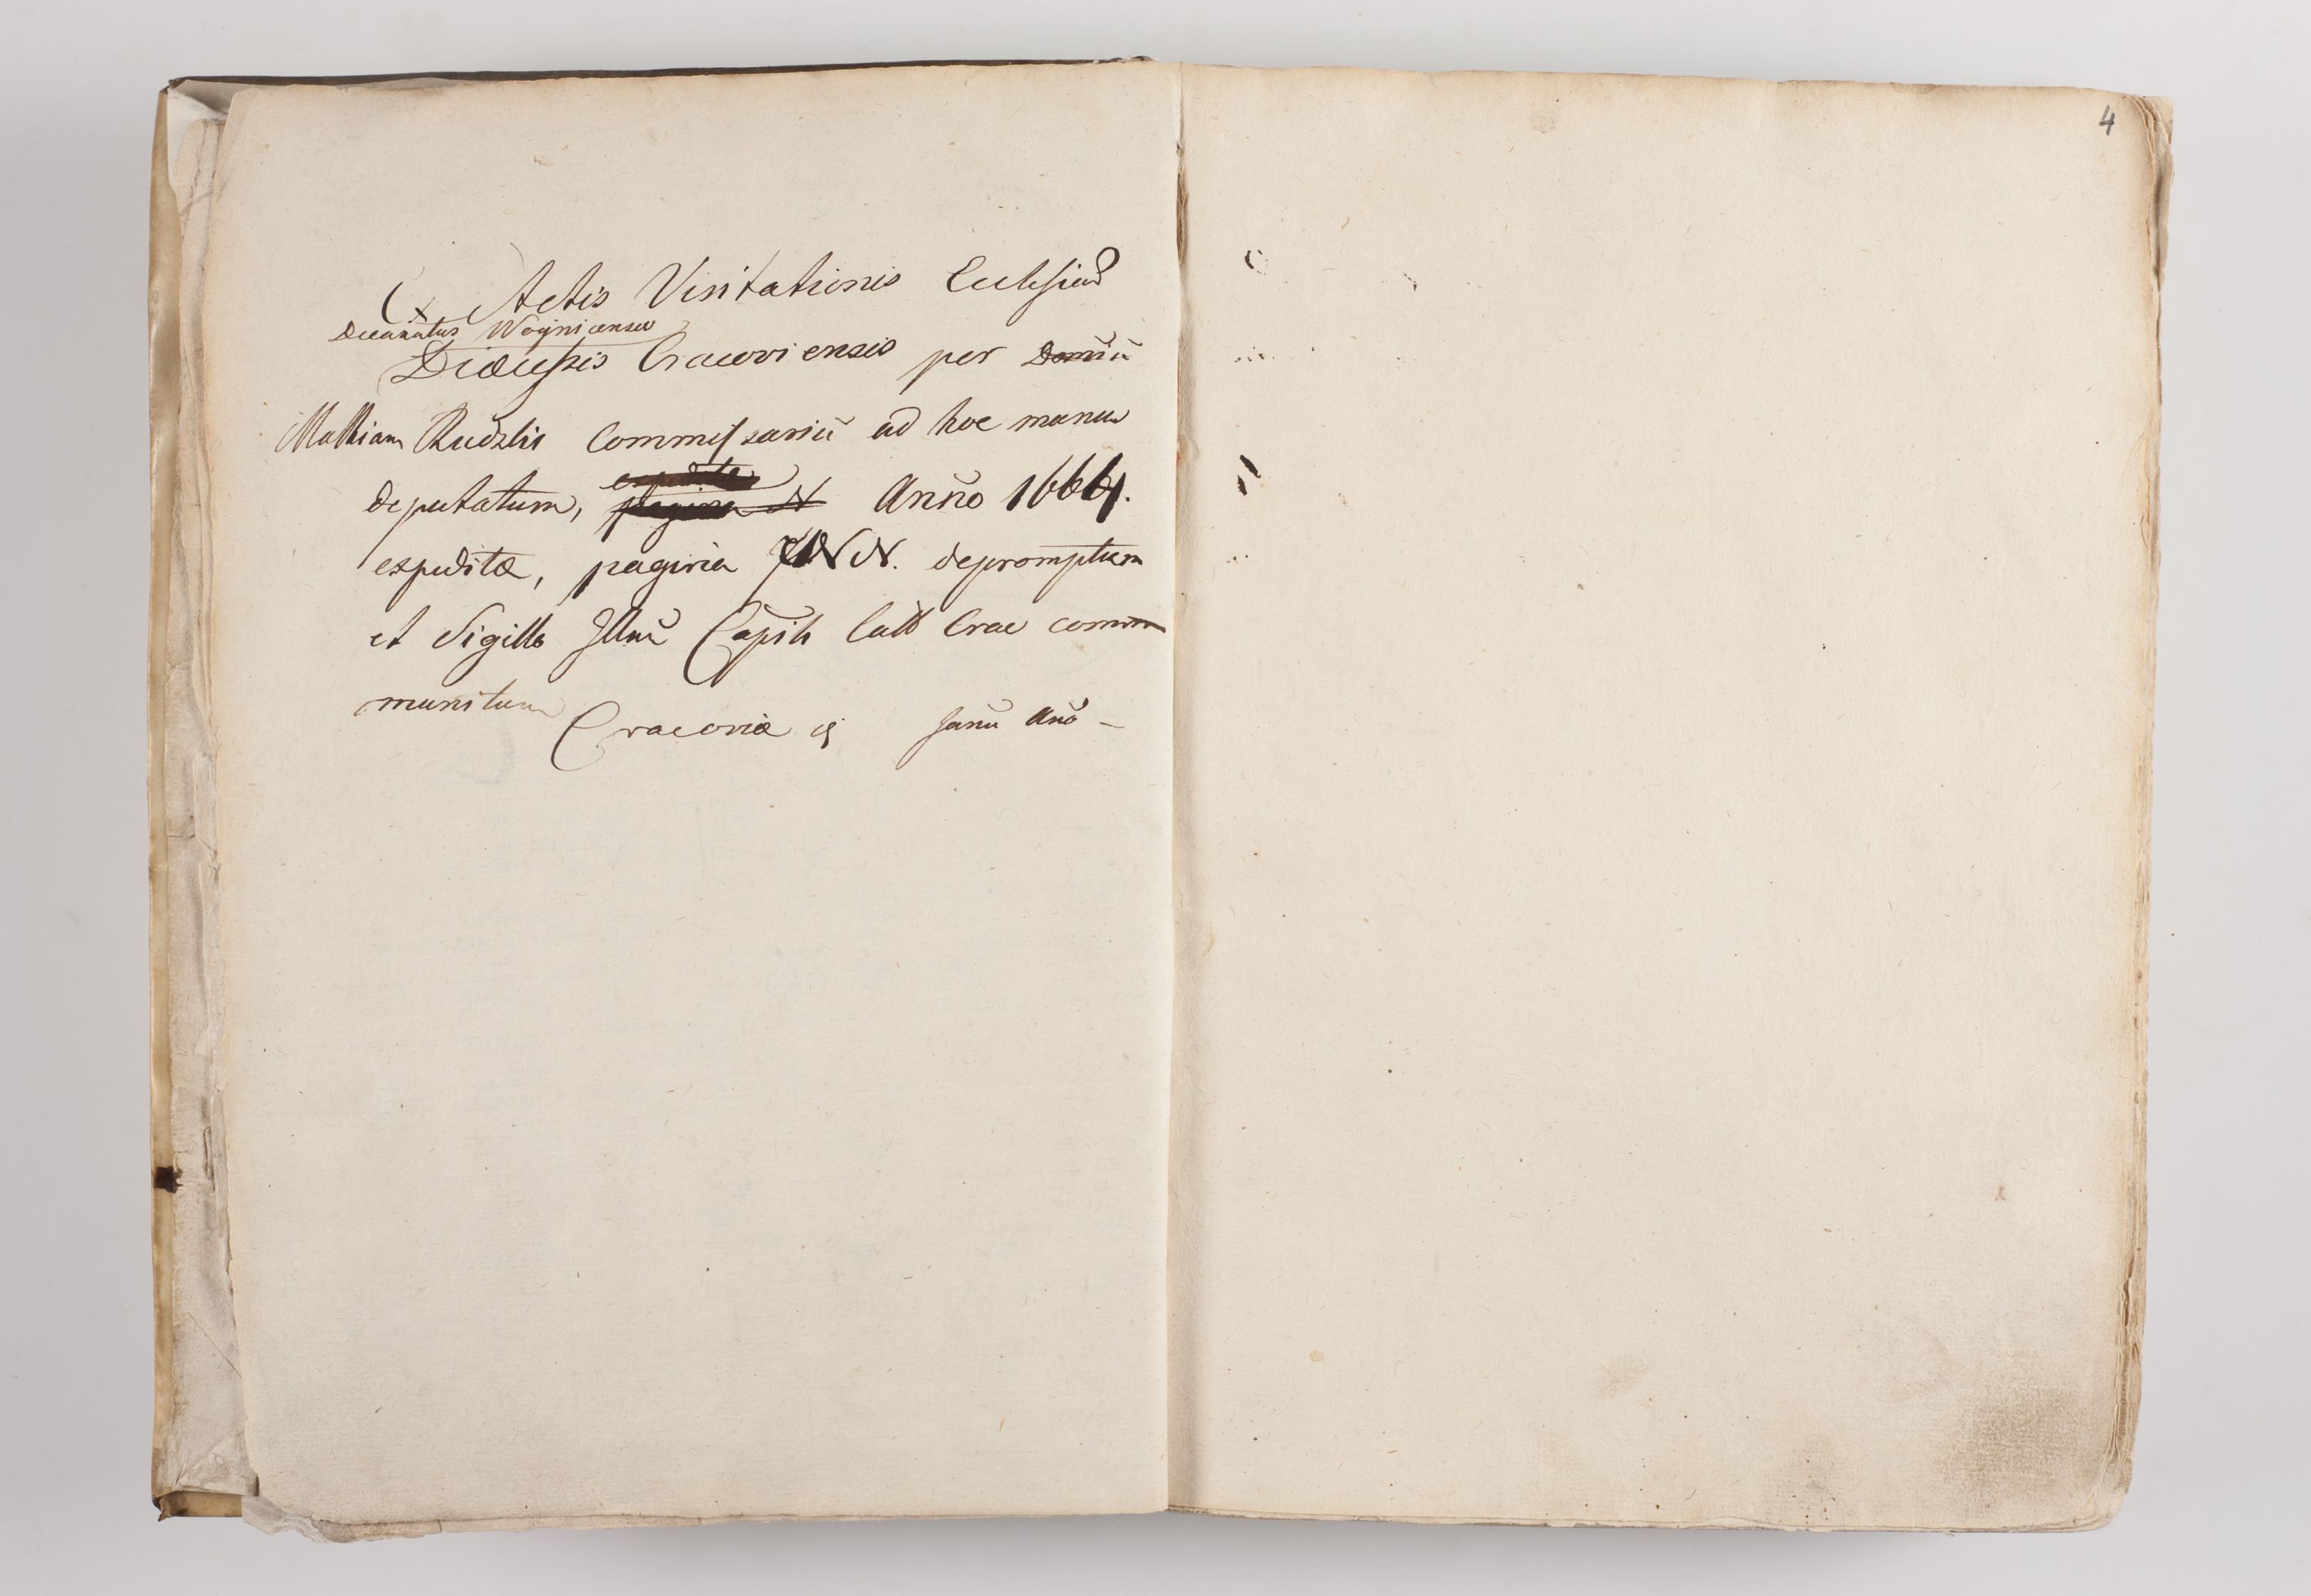 Ex Actis Visitationis Ecclesiar
Decanatus Woynicensis
Diœcesis Cracoviensis per
Mathiam Rudzki Commissariū ad hoc munus
deputatum, Anno 1664.
expeditæ, pagina N. depromptum
et Sigillo Illmi Capit Cath Crac comm
munitum
Cracoviæ Janu Ano –
4